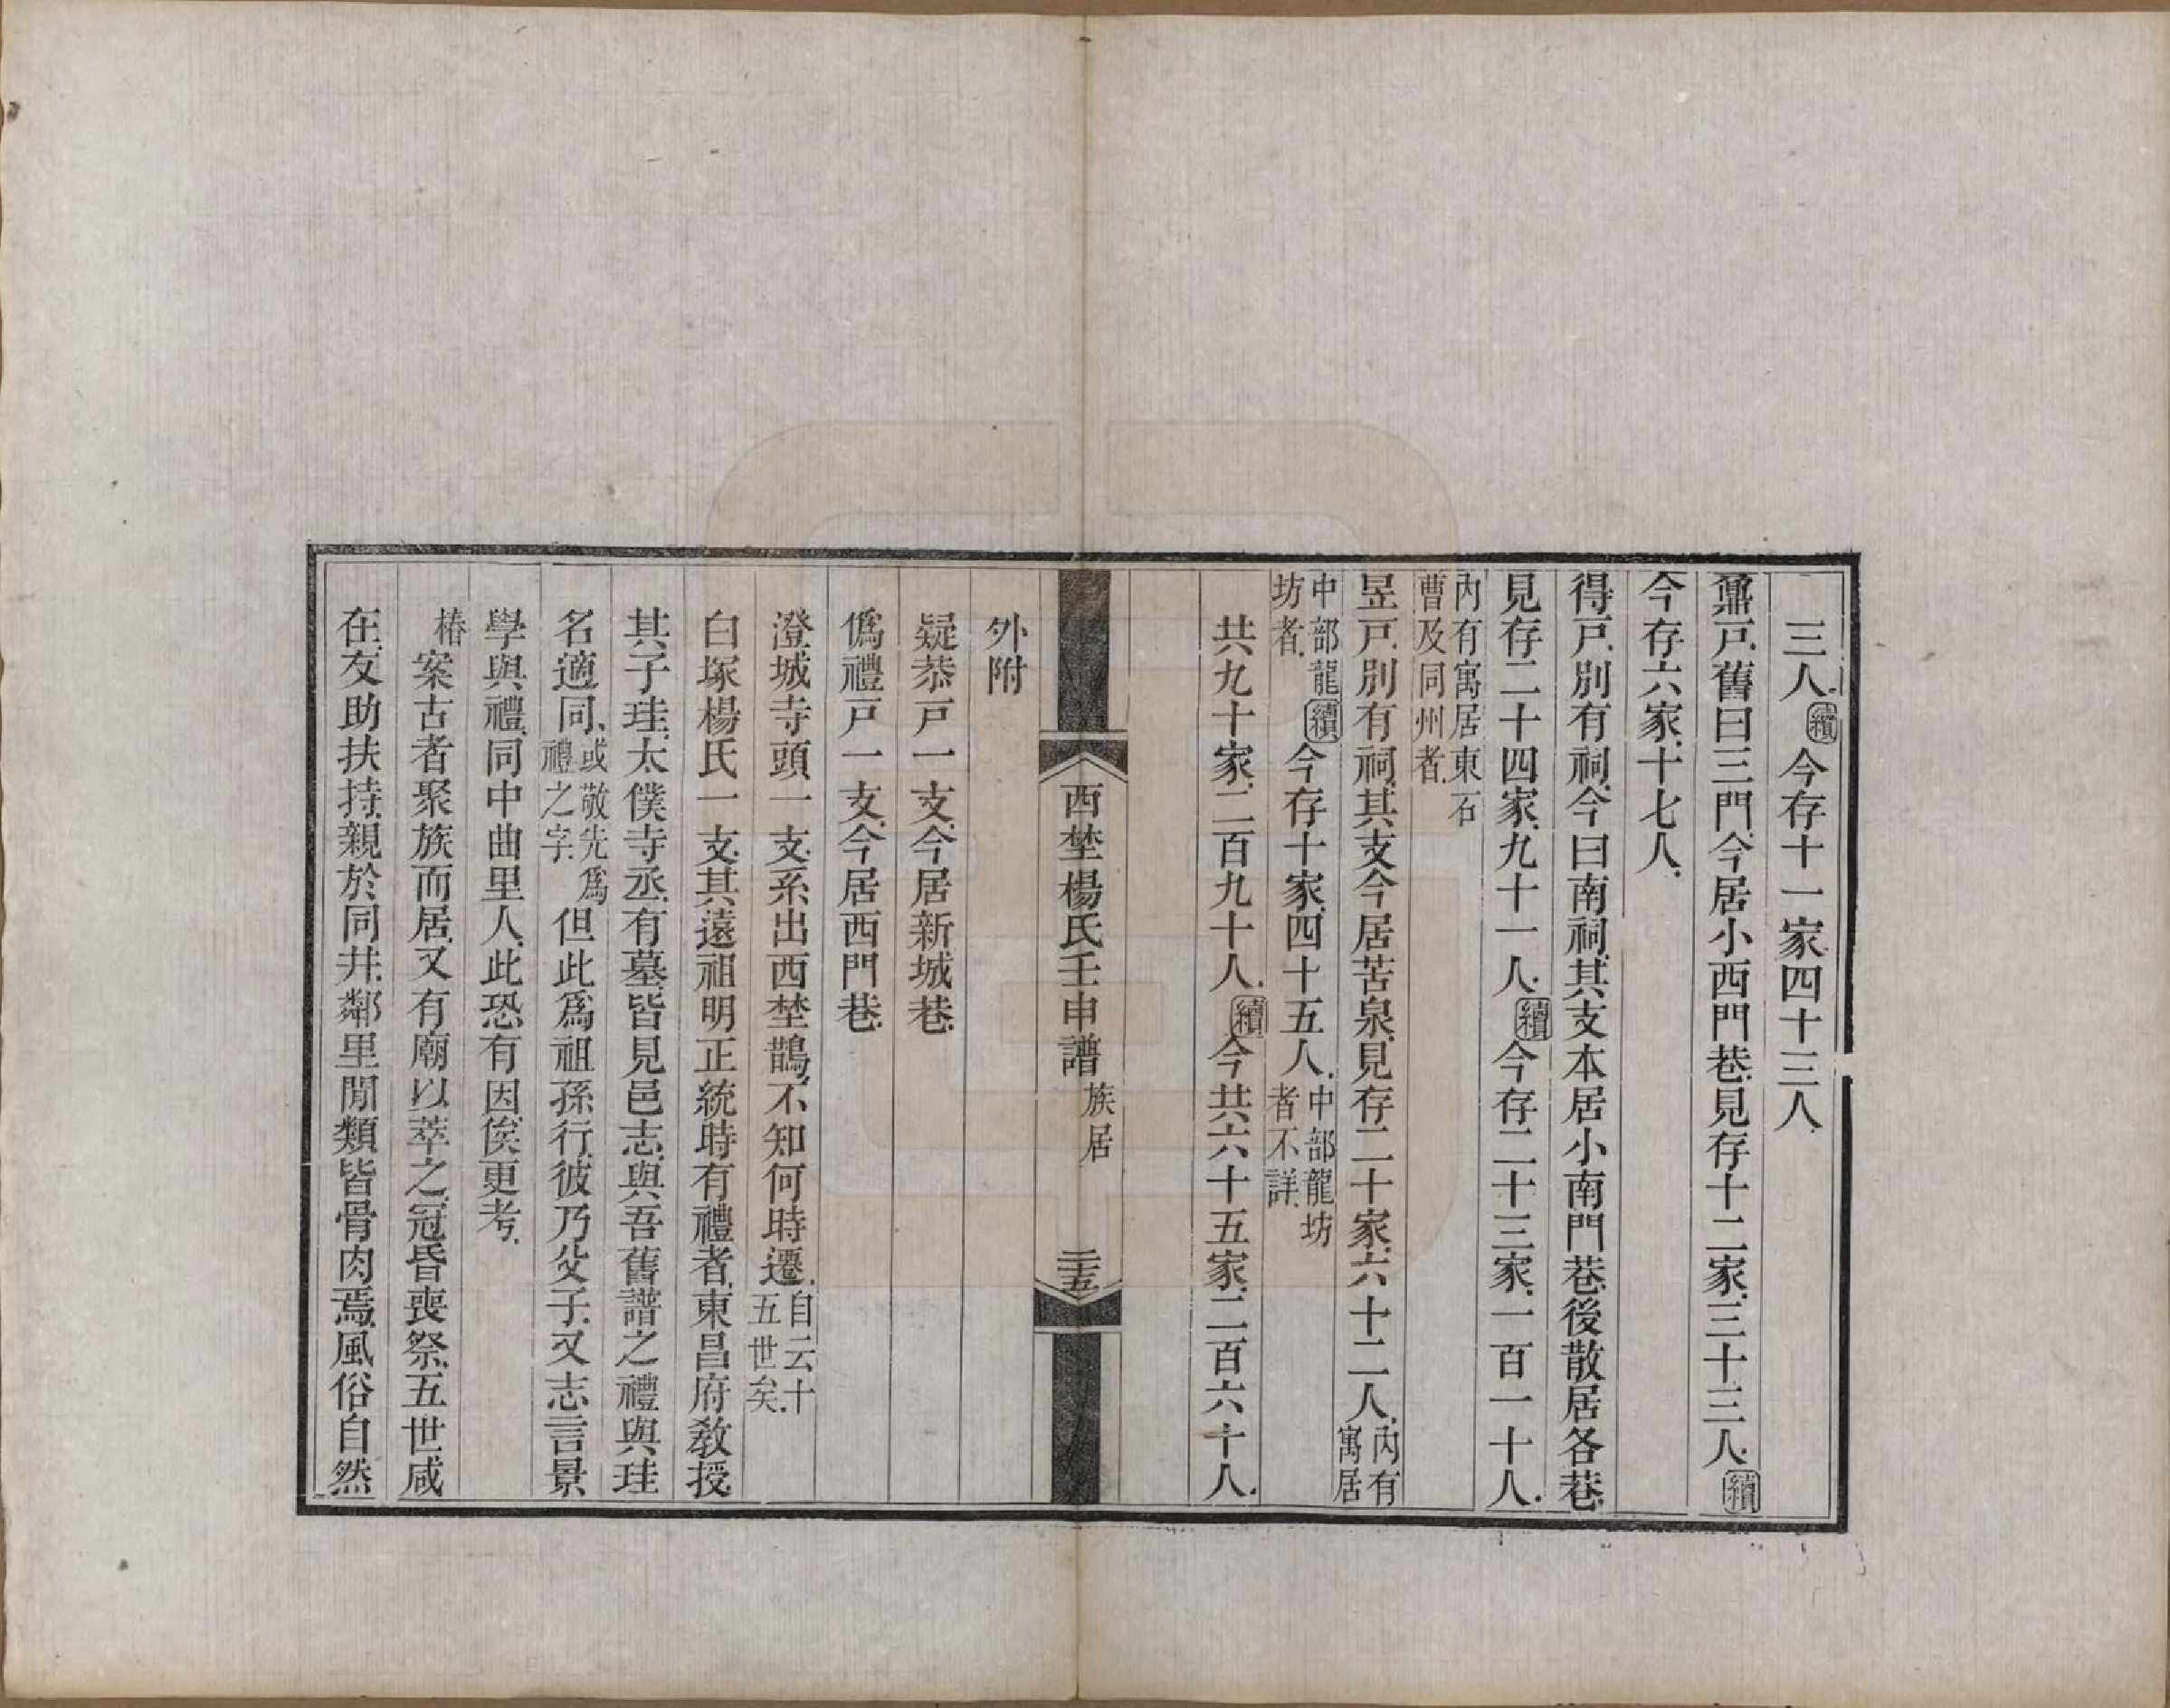 三人續今存十一家四十三人
鼐戸舊曰三門今居小西門巷見存十二家三十三人續
今存六家十七人
得戸別有祠今曰南祠其支本居小南門巷後散居各巷
見存二十四家九十一人續今存二十三家一百一十人
內有寓居東石
曹及同州者
昱戸別有祠其支今居苦泉見存二十家六十二人內有寓居
中部龍坊者續今存十家四十五人中部龍坊者不詳
共九十家二百九十人續今共六十五家二百六十人
西埜楊氏壬申譜 族居 二十五
外附
疑恭戸一支今居新城巷
僞禮戸一支今居西門巷
澄城寺頭一支系出西埜鵲不知何時遷自云十五世矣
白塚楊氏一支其遠祖明正統時有禮者東昌府教授
其子珪太僕寺丞有墓皆見邑志與吾舊譜之禮與珪
名適同或敬先爲禮之字但此爲祖孫行彼乃父子又志言景
學與禮同中曲里人此恐有因俟更考
椿案古者聚族而居又有廟以萃之冠昏喪祭五世咸
在友助扶持親於同井鄰里閒類皆骨肉焉風俗自然